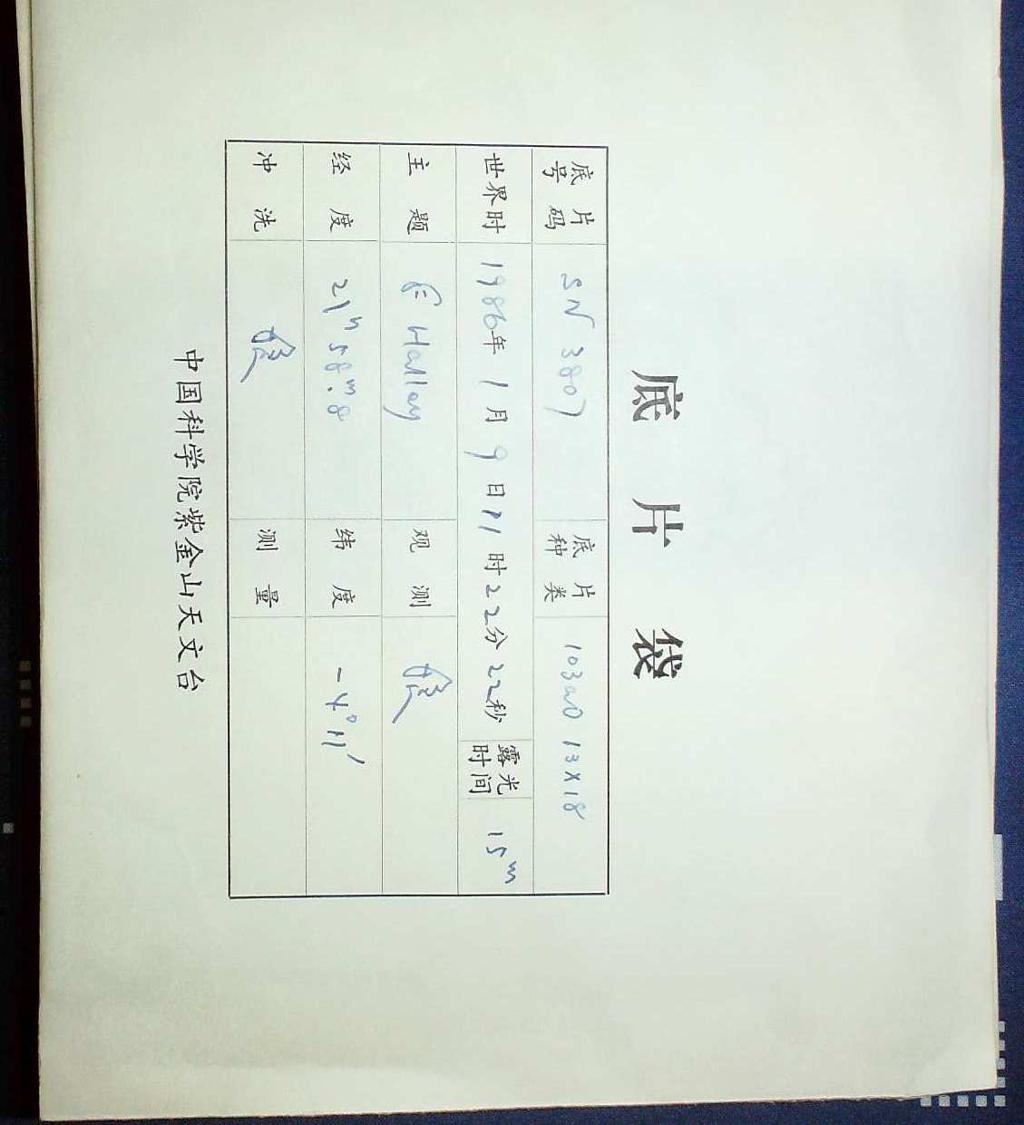 底片袋
底片号码 SN 3807 底片种类 103aO 13×18
世界时 1986年1月9日11时22分22秒 露光时间 15m
主题 Halley 观测
经度 21h 58m.8 纬度 -4°11′
冲洗 测量
中国科学院紫金山天文台